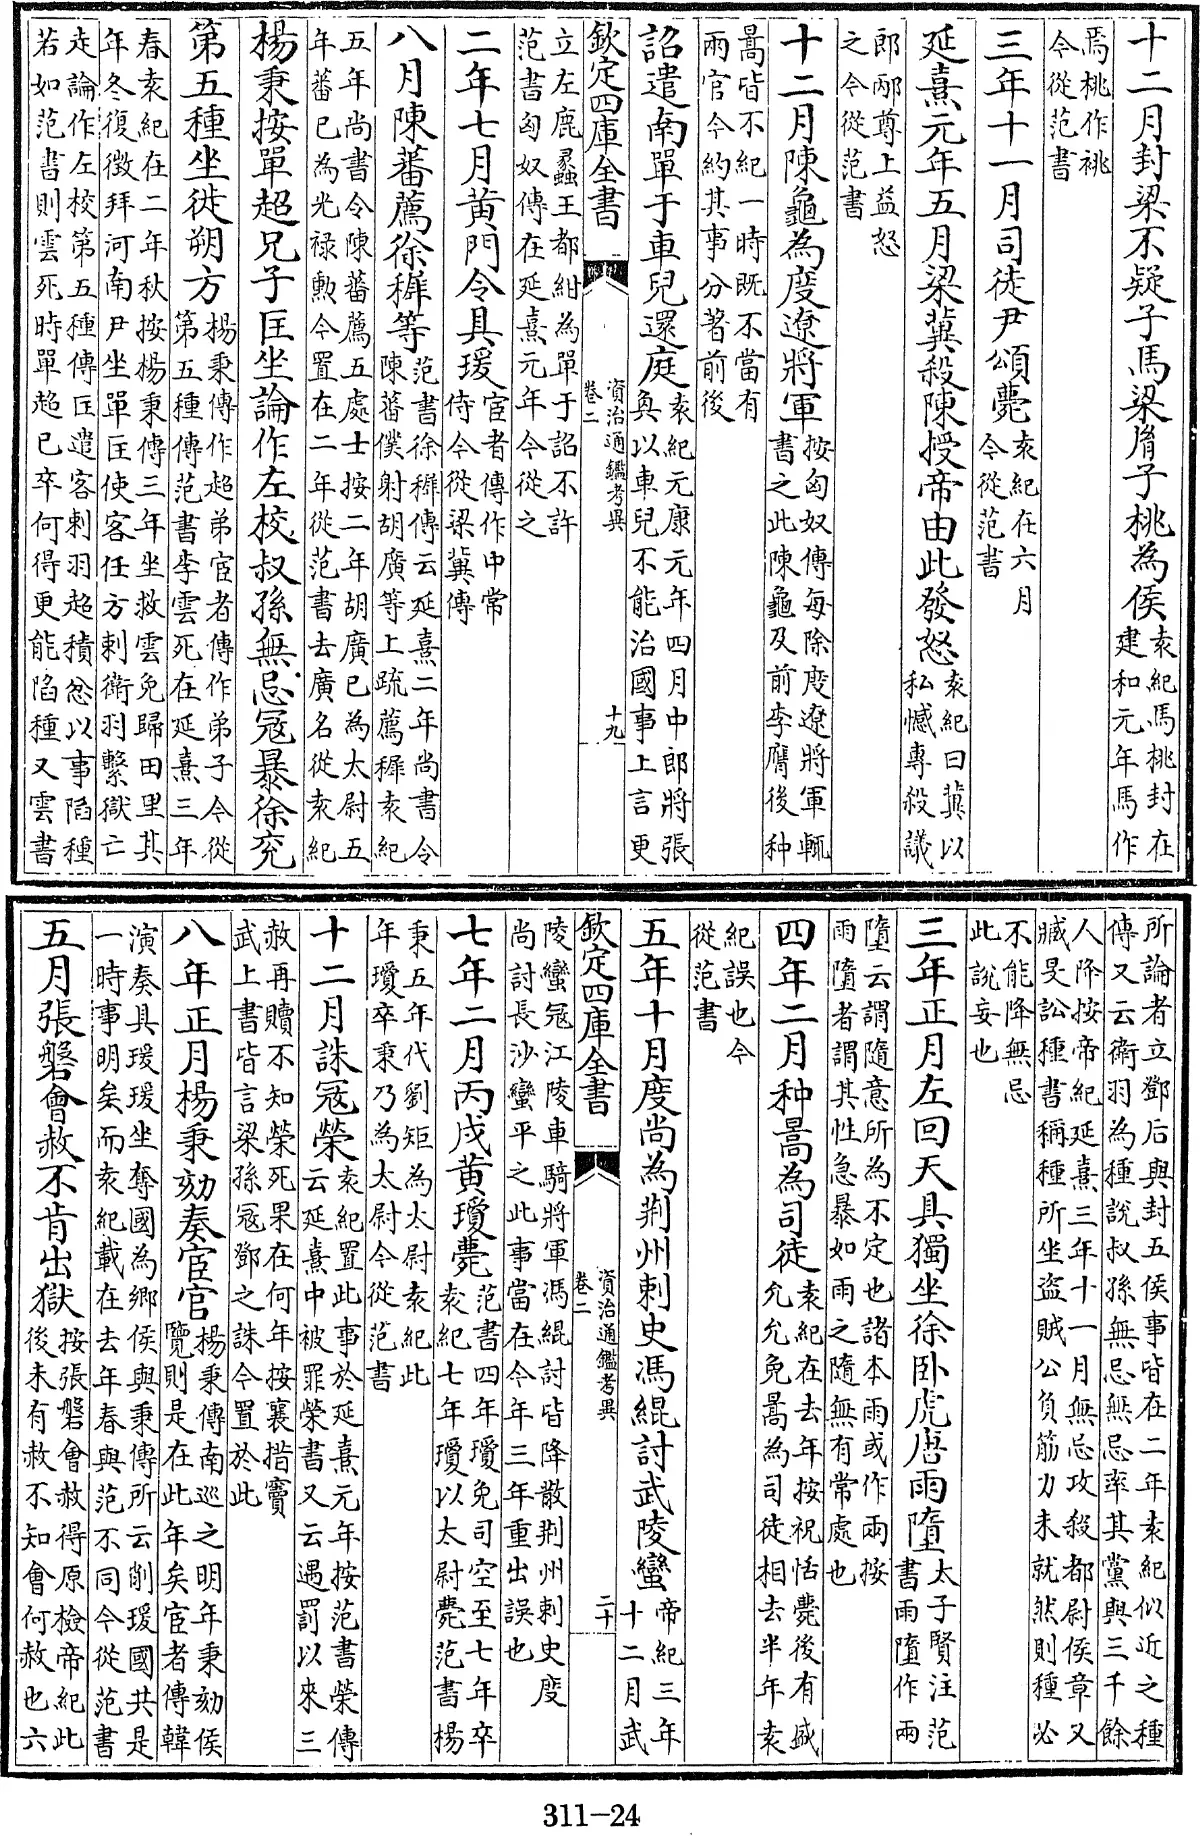 十二月封梁不疑子馬梁𦙍子桃為侯袁紀馬桃封在建和元年馬作
焉桃作祧今從范書
三年十一月司徒尹頌薨袁紀在六月今從范書
延熹元年五月梁冀殺陳授帝由此發怒袁紀曰冀以私憾專殺議
郎邴尊上益怒之今從范書
十二月陳龜為度遼將軍按匈奴傳每除度遼將軍輒書之此陳龜及前李膺後种
暠皆不紀一時既不當有兩官今約其事分著前後
詔遣南單于車兒還庭袁紀元康元年四月中郎將張奐以車兒不能治國事上言更
欽定四庫全書 資治通鑑考異 卷二 十九
立左鹿蠡王都紺為單于詔不許范書匈奴傳在延熹元年今從之
二年七月黃門令具瑗宦者傳作中常侍今從梁冀傳
八月陳蕃薦徐穉等范書徐穉傳云延熹二年尚書令陳蕃僕射胡廣等上疏薦穉袁紀
五年尚書令陳蕃薦五處士按二年胡廣已為太尉五年蕃已為光祿勳今置在二年從范書去廣名從袁紀
楊秉按單超兄子匡坐論作左校叔孫無忌寇暴徐兗
第五種坐徙朔方楊秉傳作超弟宦者傳作弟子今從第五種傳范書李雲死在延熹三年
春袁紀在二年秋按楊秉傳三年坐救雲免歸田里其年冬復徵拜河南尹坐單匡使客任方刺衛羽繫獄亡
走論作左校第五種傳匡遣客刺羽超積忿以事陷種若如范書則雲死時單超已卒何得更能陷種又雲書
所論者立鄧后與封五侯事皆在二年袁紀似近之種傳又云衛羽為種說叔孫無忌無忌率其黨與三千餘
人降按帝紀延熹三年十一月無忌攻殺都尉侯章又臧旻訟種書稱種所坐盜賊公負筋力未就然則種必
不能降無忌此說妄也
三年正月左回天具獨坐徐卧虎唐雨墮太子賢注范書雨墮作兩
墮云謂隨意所為不定也諸本雨或作兩按雨墮者謂其性急暴如雨之隨無有常處也
四年二月种暠為司徒袁紀在去年按祝恬薨後有盛允允免暠為司徒相去半年袁
紀誤也今從范書
五年十月度尚為荆州刺史馮緄討武陵蠻帝紀三年十二月武
欽定四庫全書 資治通鑑考異 卷二 二十
陵蠻寇江陵車騎將軍馮緄討皆降散荆州刺史度尚討長沙蠻平之此事當在今年三年重出誤也
七年二月丙戌黃瓊薨范書四年瓊免司空至七年卒袁紀七年瓊以太尉薨范書楊
秉五年代劉矩為太尉袁紀此年瓊卒秉乃為太尉今從范書
十二月誅寇榮袁紀置此事於延熹元年按范書榮傳云延熹中被罪榮書又云遇罰以來三
赦再贖不知榮死果在何年按襄揩竇武上書皆言梁孫寇鄧之誅今置於此
八年正月楊秉劾奏宦官楊秉傳南巡之明年秉劾侯覽則是在此年矣宦者傳韓
演奏具瑗瑗坐奪國為鄉侯與秉傳所云削瑗國共是一時事明矣而袁紀載在去年春與范不同今從范書
五月張磐會赦不肯出獄按張磐會赦得原檢帝紀此後未有赦不知會何赦也六
311-24